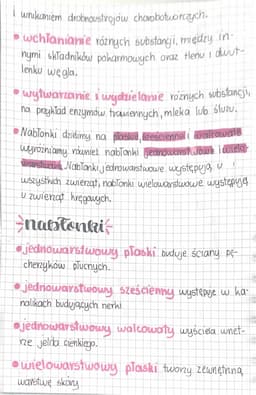 i wnikaniem drobnoustrojów chorobotwórczych.
• wchłanianie różnych substancji, między in-
nymi składników pokarmowych oraz tlenu i dwut-
lenku węgla.
• wytwarzanie i wydzielanie różnych substancji,
na przykład enzymów trawiennych, mleka lub śluzu.
• Nabłonki dzielimy na płaskie, sześcienne i walcowate
wyróżniamy również nabłonki jednowarstwowe i wielo-
warstwowe. Nabłonki jednowarstwowe występują u
wszystkich zwierząt, nabłonki wielowarstwowe występują
u zwierząt kręgowych.
nabłonki
• jednowarstwowy płaski buduje ściany pę-
cherzyków płucnych.
• jednowarstwowy sześcienny występuje w ka-
nalikach budujących nerki
• jednowarstwowy walcowaty wyściela wnęt-
rze jelita cienkiego.
• wielowarstwowy płaski tworzy zewnętrzną
warstwę skóry